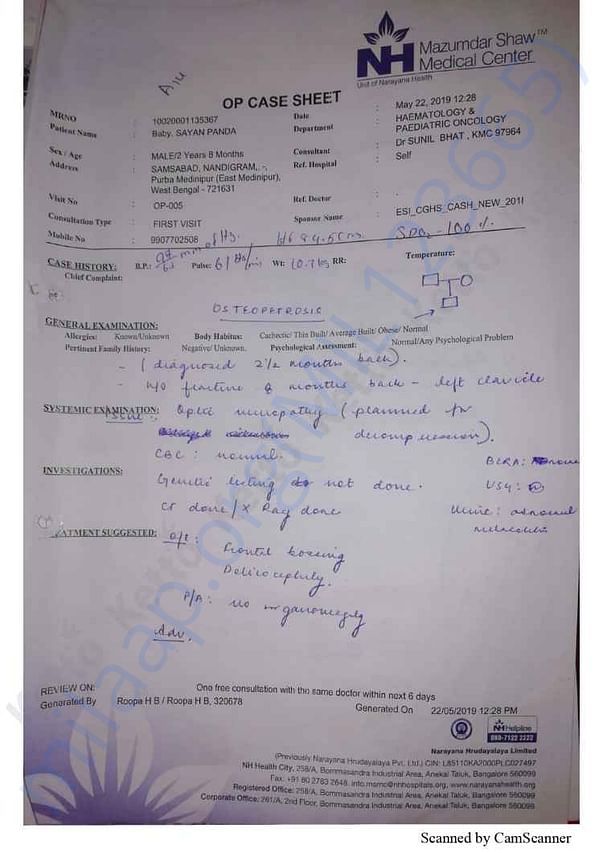 NH Mazumdar Shaw™
Medical Center
Unit of Narayana Health
OP CASE SHEET
MRNO : 10020001135367
Date : May 22, 2019 12:28
Patient Name : Baby. SAYAN PANDA
Department : HAEMATOLOGY & PAEDIATRIC ONCOLOGY
Sex / Age : MALE/2 Years 8 Months
Consultant : Dr SUNIL BHAT , KMC 97964
Address : SAMSABAD, NANDIGRAM, -,
Purba Medinipur (East Medinipur),
West Bengal - 721631
Ref. Hospital : Self
Visit No : OP-005
Ref. Doctor : .
Consultation Type : FIRST VISIT
Sponsor Name : ESI_CGHS_CASH_NEW_201I
Mobile No : 9907702508
mm of Hg. Ht 84.5cms SPO2 - 100 %
CASE HISTORY: B.P.: Pulse: Wt: 10.7kg RR: Temperature:
Chief Complaint:
OSTEOPETROSIS
GENERAL EXAMINATION:
Allergies: Known/Unknown Body Habitus: Cachectic/ Thin Built/ Average Built/ Obese/ Normal
Pertinent Family History: Negative/ Unknown. Psychological Assessment: Normal/Any Psychological Problem
- (diagnosed 2½ months back).
- H/o fracture months back - left clavicle
SYSTEMIC EXAMINATION: Optic neuropathy (planned for
decompression).
CBC : normal.
INVESTIGATIONS: Genetic testing not done.
BERA:
USG:
CT done / X Ray done
Urine: abnormal
TREATMENT SUGGESTED: O/E: Frontal bossing
Dolicocephaly.
P/A: no organomegaly
Adv.
REVIEW ON: One free consultation with the same doctor within next 6 days
Generated By Roopa H B / Roopa H B, 320678 Generated On 22/05/2019 12:28 PM
NH Helpline
Narayana Hrudayalaya Limited
(Previously Narayana Hrudayalaya Pvt. Ltd.) CIN: L85110KA2000PLC027497
NH Health City, 258/A, Bommasandra Industrial Area, Anekal Taluk, Bangalore 560099
Fax: +91 80 2783 2648, info.msmc@nhhospitals.org, www.narayanahealth.org
Registered Office: 258/A, Bommasandra Industrial Area, Anekal Taluk, Bangalore 560099
Corporate Office: 261/A, 2nd Floor, Bommasandra Industrial Area, Anekal Taluk, Bangalore 560099
Scanned by CamScanner